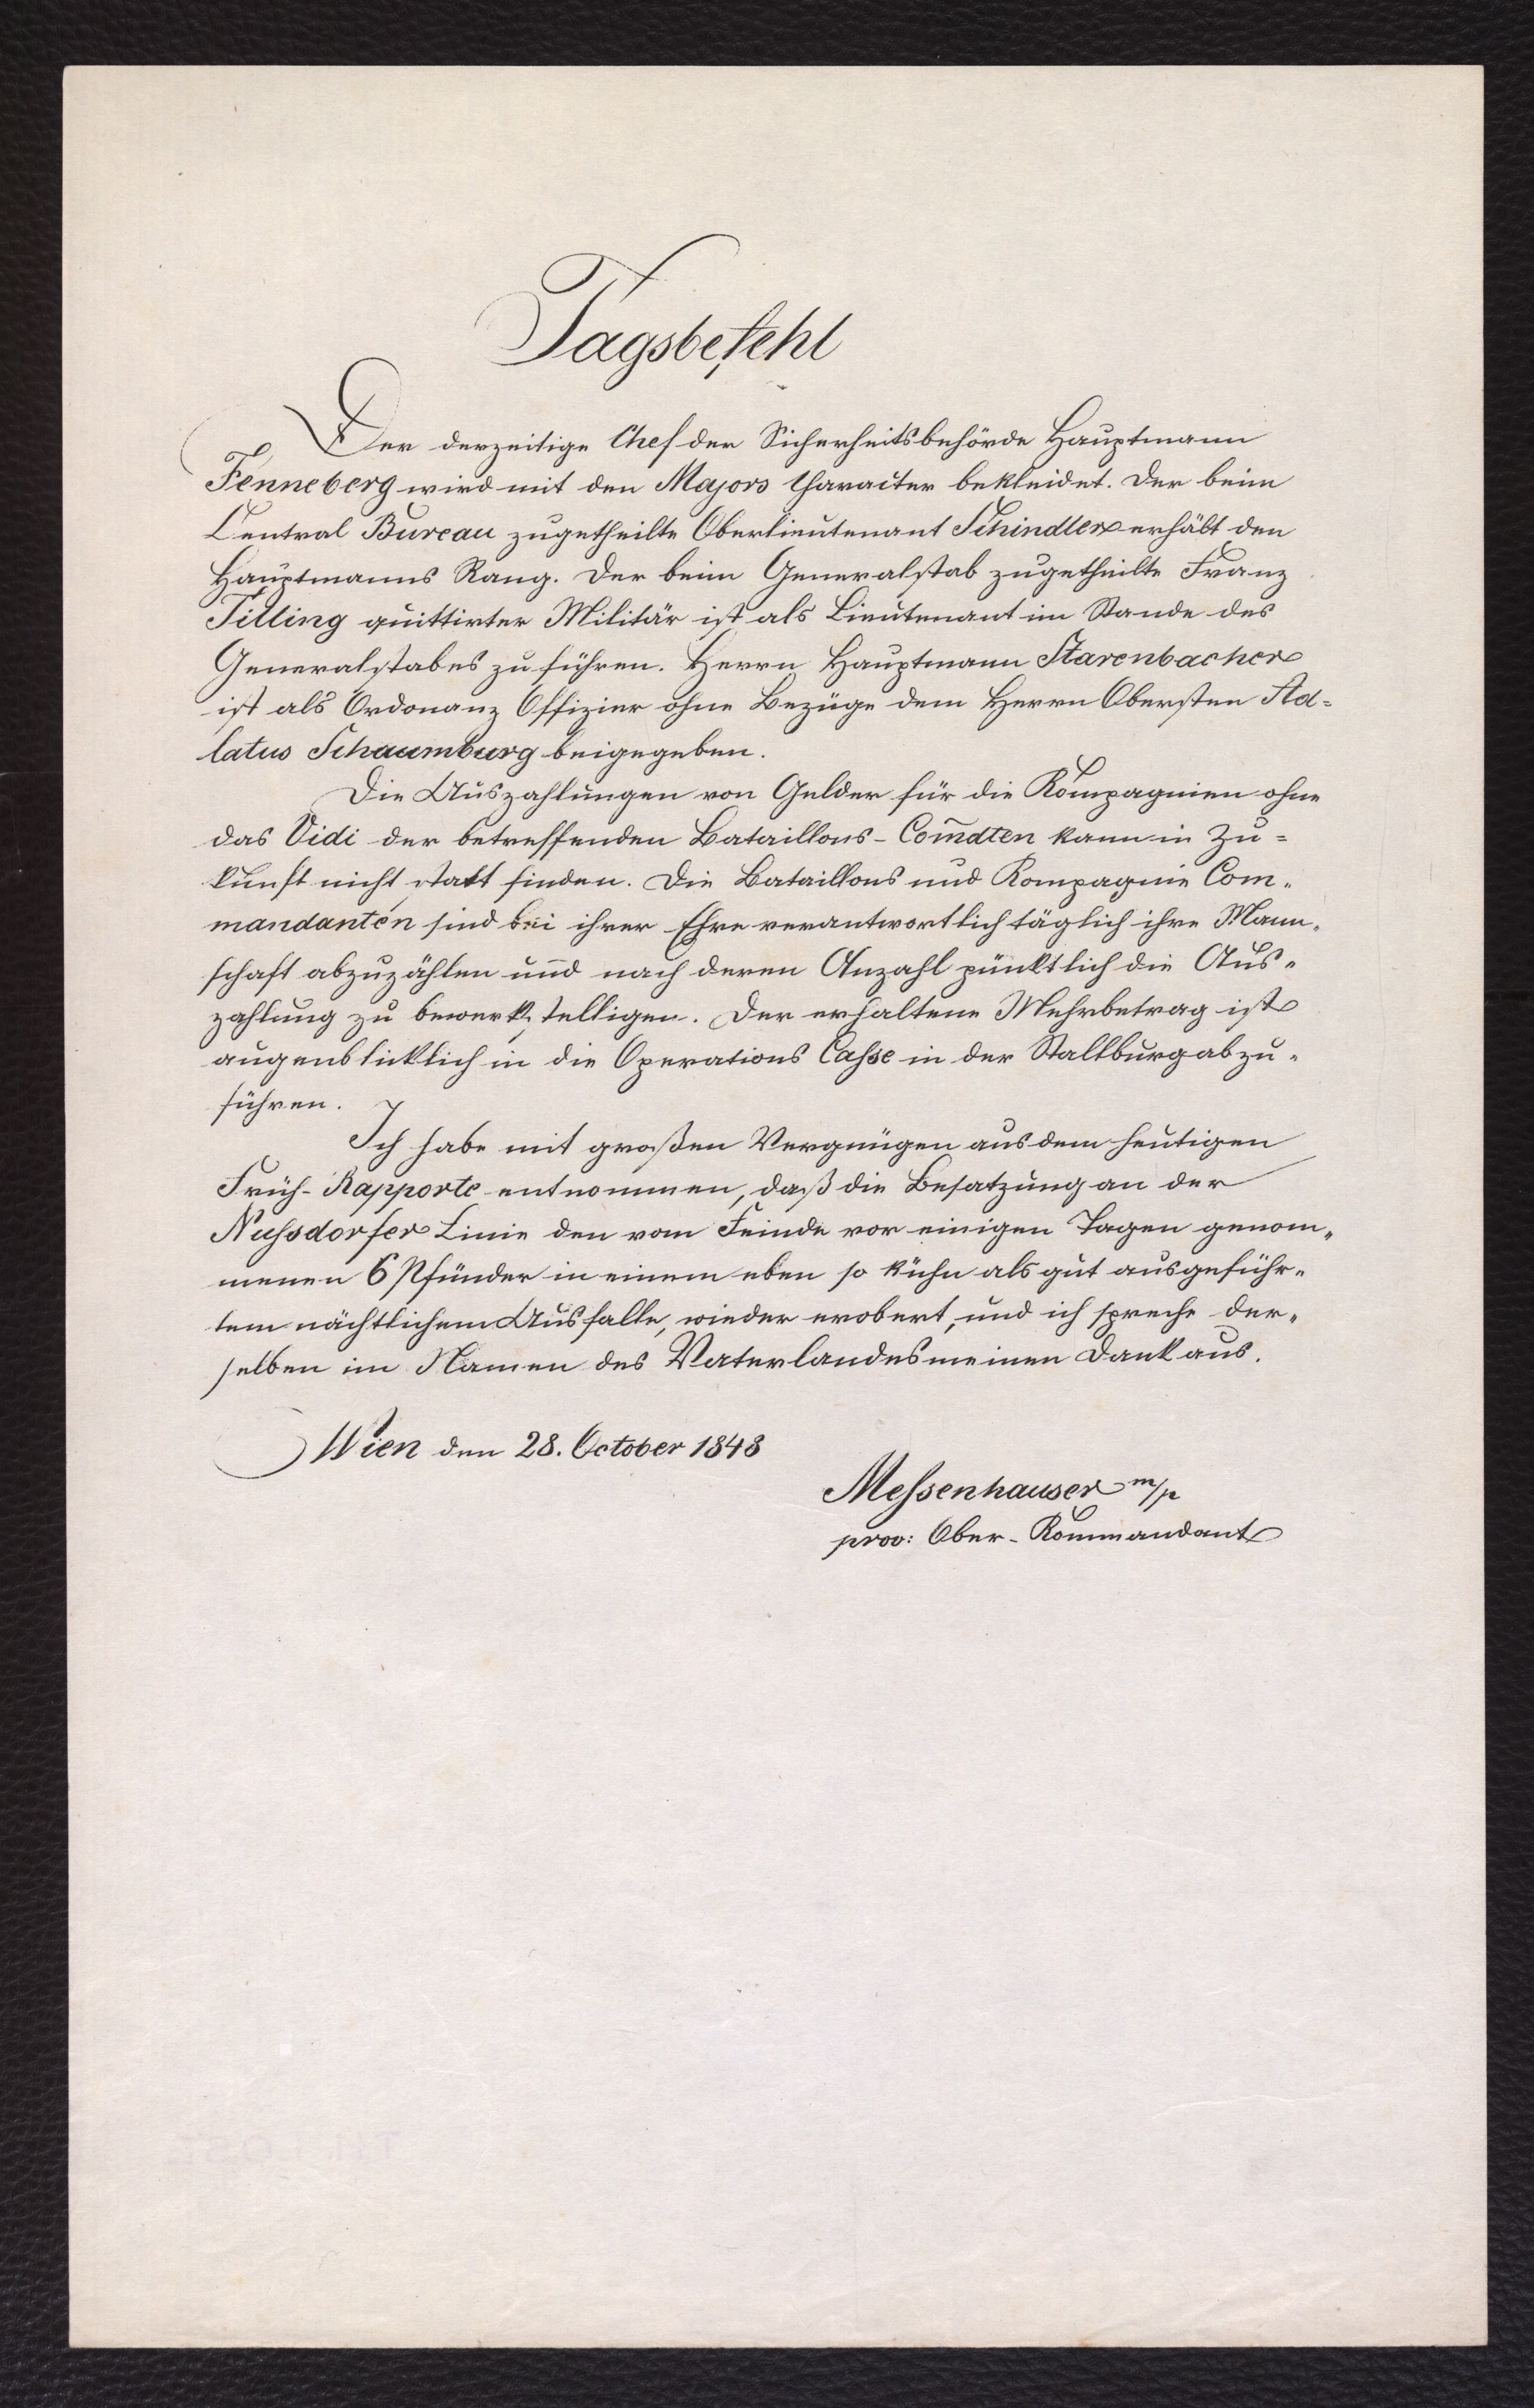 Tagsbefehl
Der derzeitige Chef der Sicherheitsbehörde Hauptmann
Fenneberg wird mit den Majors Character bekleidet. Der beim
Central Bureau zugetheilte Oberlieutenant Schindler erhält den
Hauptmanns Rang. Der beim Generalstab zugetheilte Franz
Tilling quittirter Militär ist als Lieutenant im Stande des
Generalstabes zu führen. Herrn Hauptmann Starenbacher
ist als Ordonanz Offizier ohne Bezüge dem Herrn Obersten Ad=
latus Schaumburg beigegeben.
Die Auszahlungen von Gelder für die Kompagnien ohne
das Vidi der betreffenden Bataillons-Com̄dten kann in Zu=
kunft nicht statt finden. Die Bataillons und Kompagnie Com=
mandanten sind bei ihrer Ehre verantwortlich täglich ihre Mann=
schaft abzuzählen und nach deren Anzahl pünktlich die Aus=
zahlung zu bewerkstelligen. Der erhaltene Mehrbetrag ist
augenblicklich in die Operations Casse in der Stallburg abzu=
führen.
Ich habe mit großen Vergnügen aus dem heutigen
Früh-Rapporte entnommen, daß die Besatzung an der
Nussdorfer Linie den vom Feinde vor einigen Tagen genom=
menen 6 Pfünder in einem eben so kühn als gut ausgeführ=
tem nächtlichem Ausfalle, wieder erobert, und ich spreche der=
selben im Namen des Vaterlandes meinen Dank aus.
Wien den 28. October 1848
Messenhauser m/p
prov: Ober-Kommandant